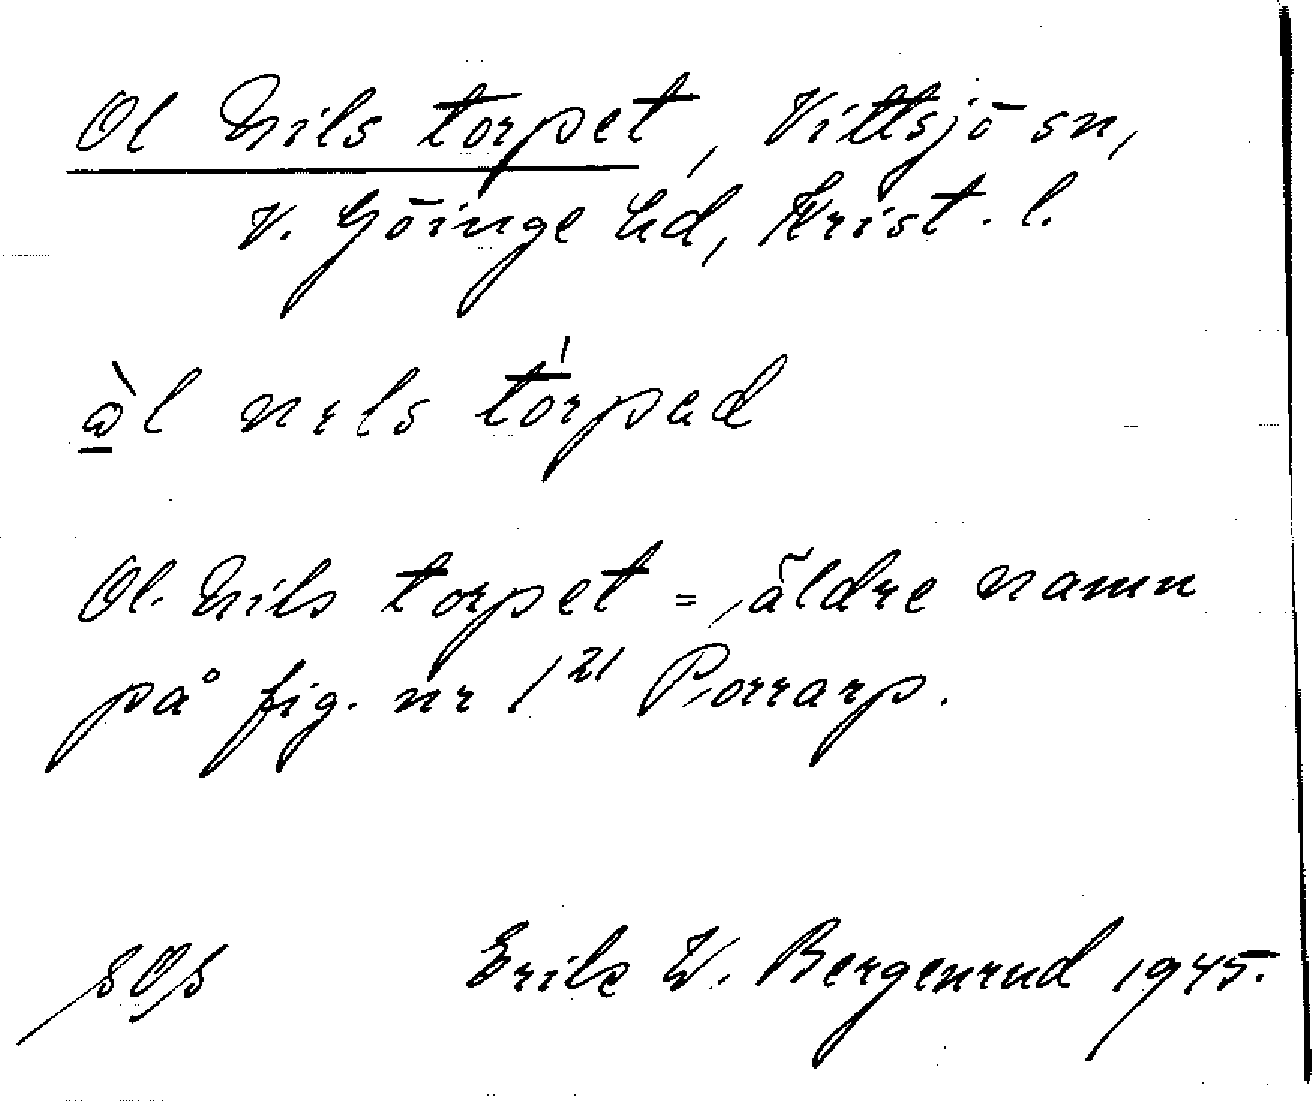 Ol Nils torpet, Vittsjö sn,
V. Göinge hd, Krist. l.
àl nels tórpad
Ol. Nils torpet = äldre namn
på fig. nr 1²¹ Porrarp.
SOS Erik W. Bergenrud 1945.